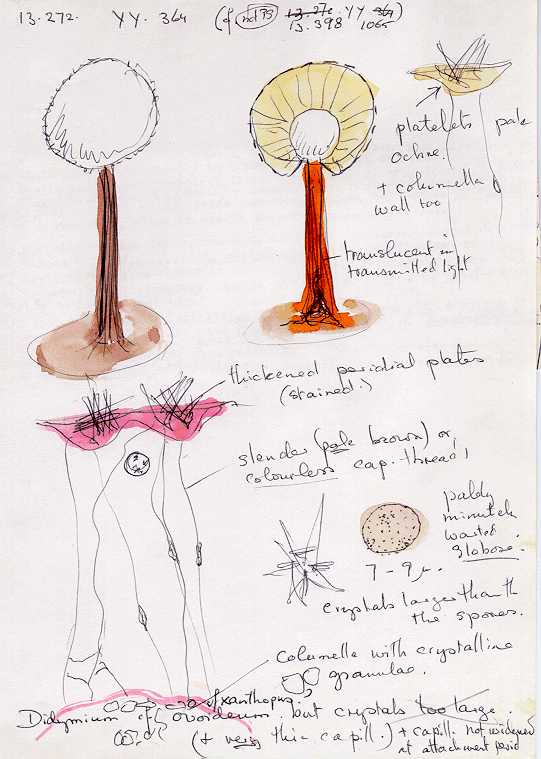 13.272. YY. 364 (cf not 93 13.27c. YY 364)
13.398 1065
platelets pale
ochre.
+ columella
wall too
translucent in
transmitted light
thickened peridial plates
(stained.)
slender (pale brown) or
colourless cap. threads
palely
minutely
warted
globose.
7 - 9 µ.
crystals larger than
the spores.
columella with crystalline
granulae.
of xanthopus.
Didymium cf ovoideum. but crystals too large.
(+ very thin capill.) + capill. not widened
at attachment perid